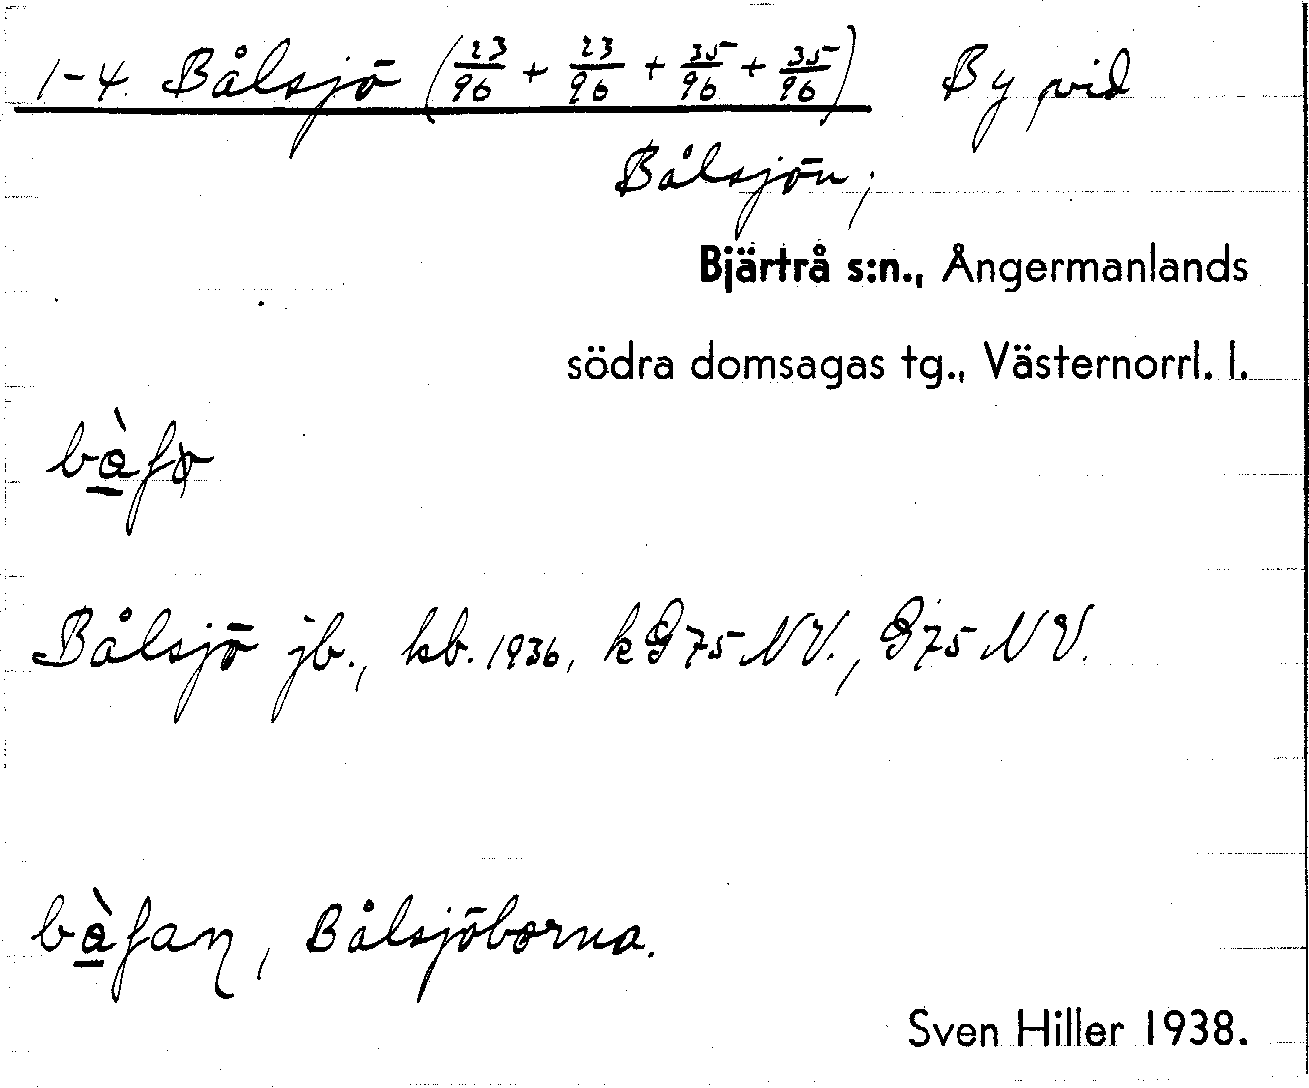 1-4. Bålsjö (23/96 + 23/96 + 35/96 + 35/96) By vid
Bålsjön;
Bjärtrå s:n., Ångermanlands
södra domsagas tg., Västernorrl. l.
Bålsjö jb., kb. 1936, k G 75 NV., G 75 NV.
Bålsjöborna.
Sven Hiller 1938.